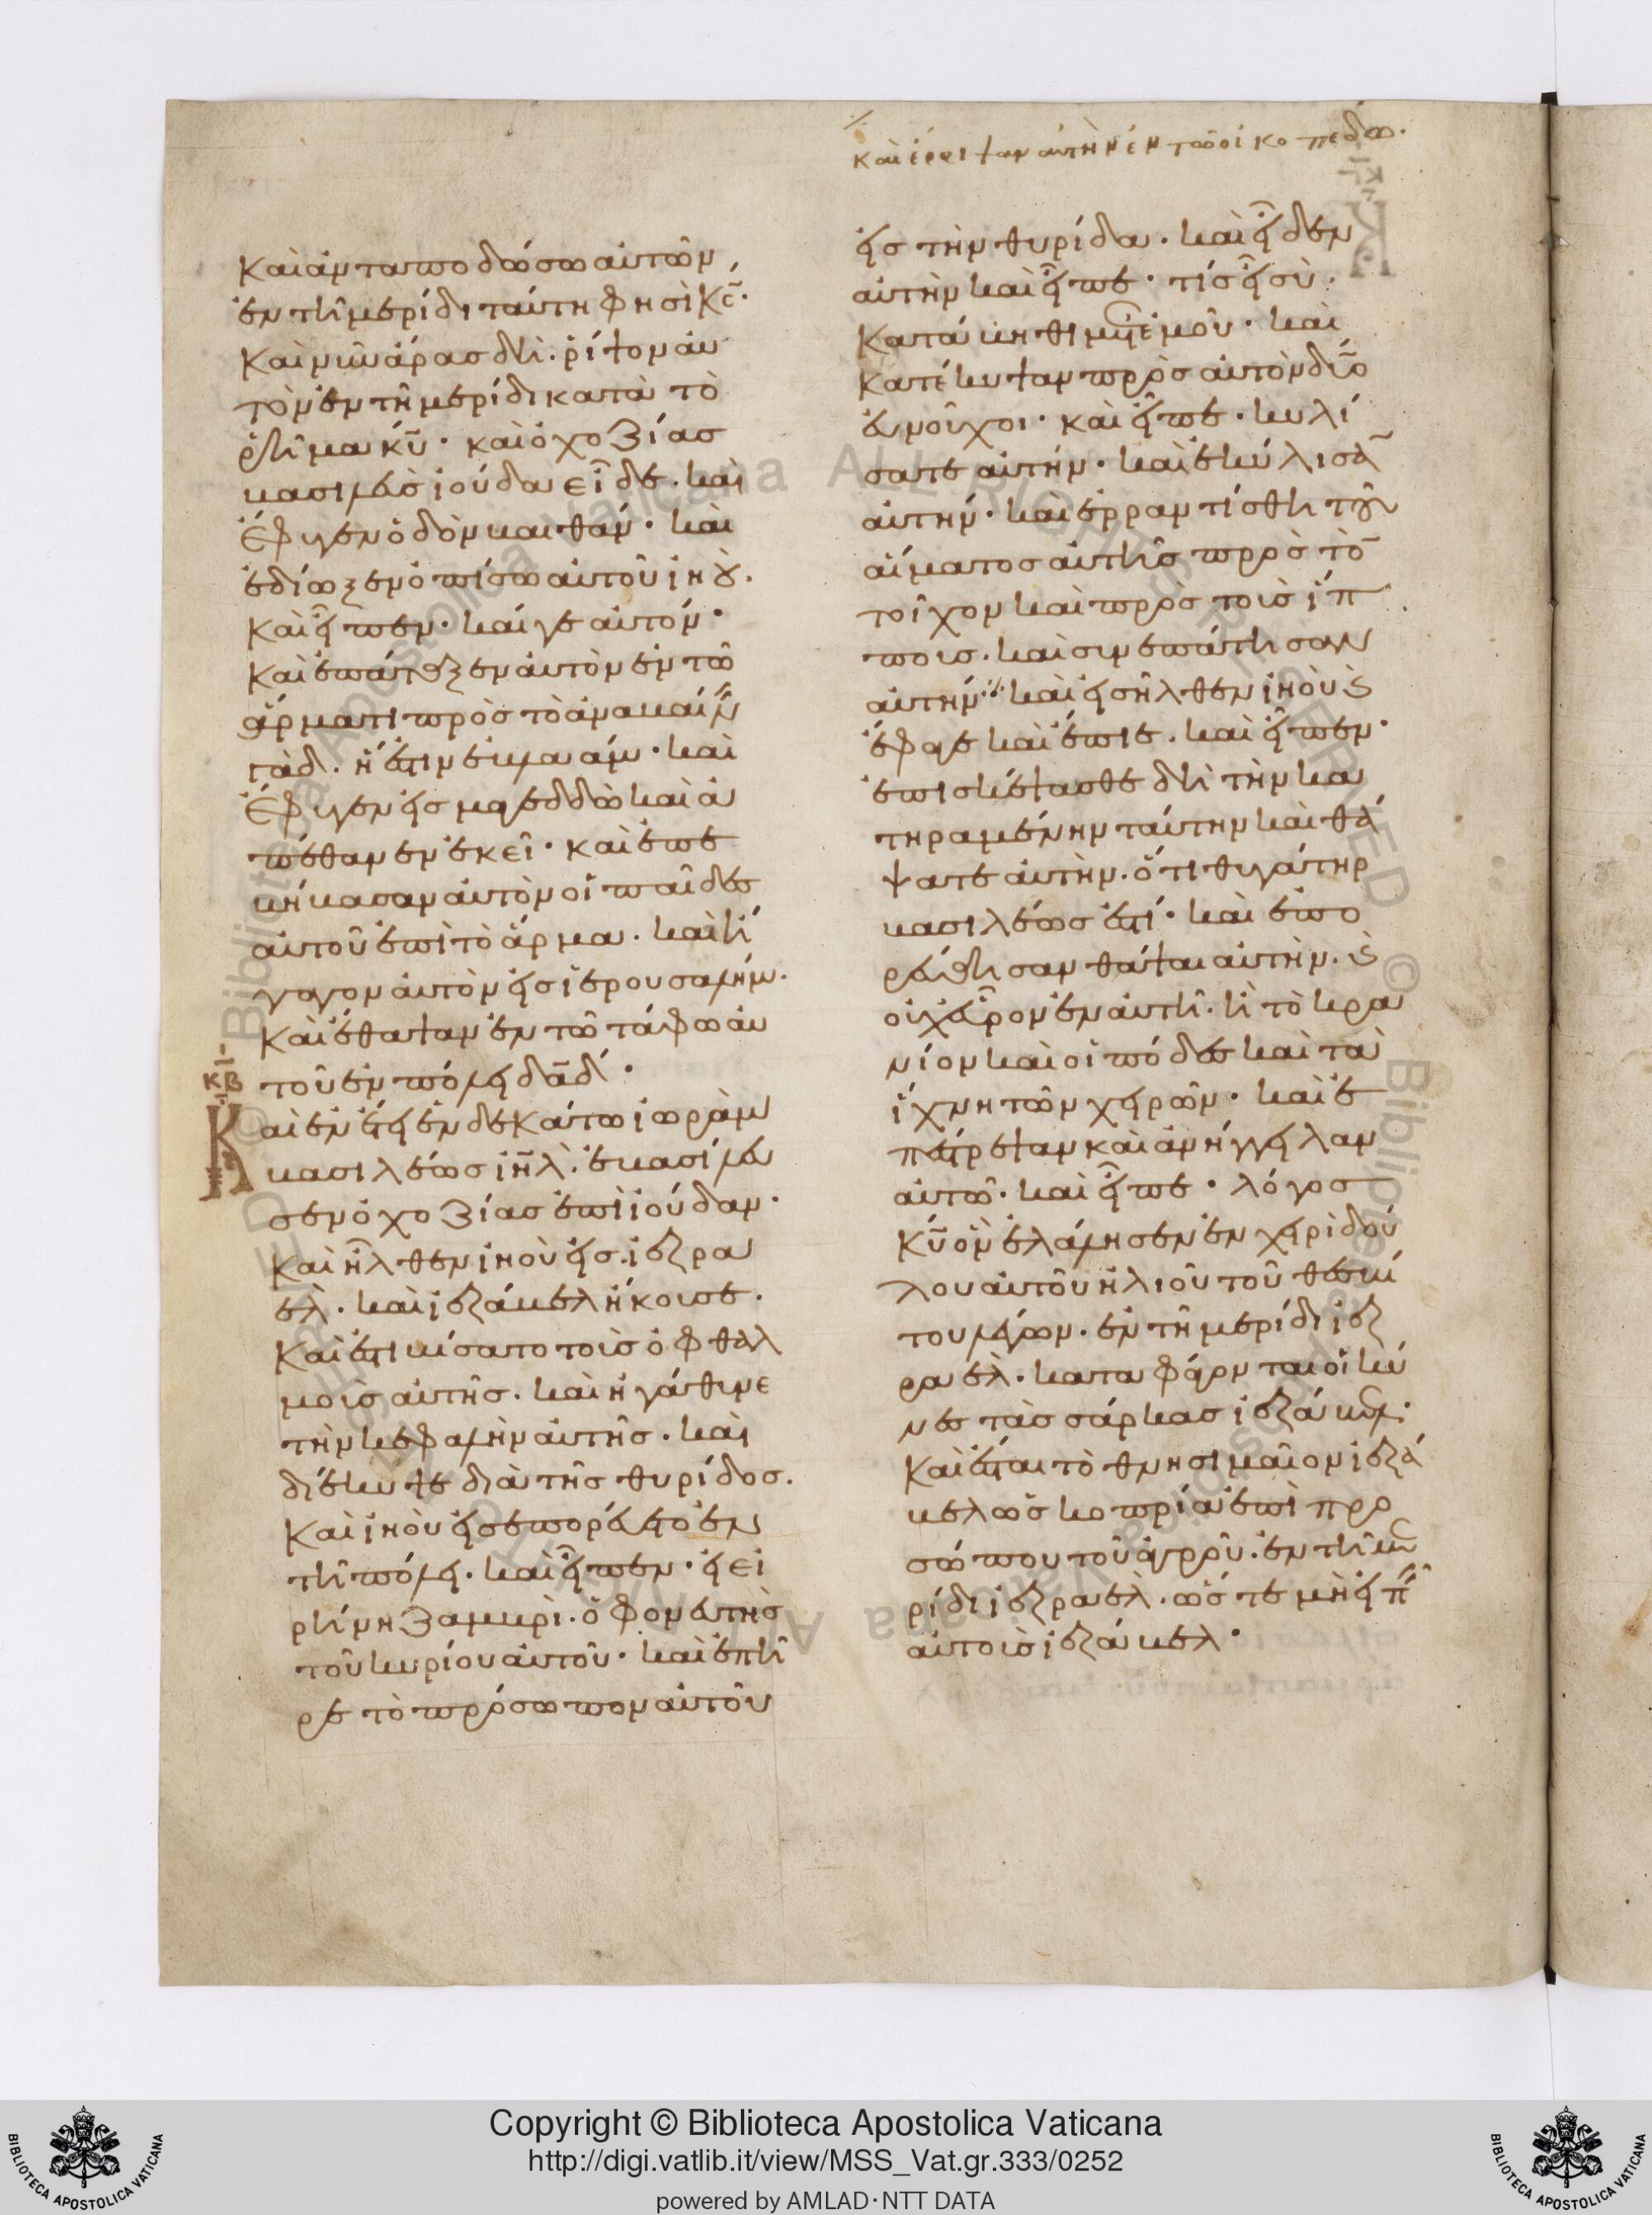 καὶ ἔρριψαν αὐτὴν ἐν τῶ οἰκοπέδω.
Καὶ ἀνταποδώσω αὐτῶν
ἐν τῆ μερίδι ταύτη φησὶ κς̄.
Καὶ νῦν ἄρας δὴ. ῥίψον αὐ
τὸν ἐν τῆ μερίδι κατὰ τὸ
ῥῆμα κῡ. καὶ ὀχοζίας
βασιλεὺς ἰούδα εἶδε. καὶ
ἔφυγεν ὁδὸν βαιθάν. καὶ
ἐδίωξεν ὀπίσω αὐτοῦ ἰηού.
Καὶ εἶπεν. καί γε αὐτόν.
Καὶ ἐπάταξεν αὐτὸν ἐν τῶ
ἅρματι πρὸς τὸ ἀναβαίνειν
γάδ. ἥ ἐστιν ἐβλαάμ. καὶ
ἔφυγεν εἰς μαγεδδὼ καὶ ἀ
πέθανεν ἐκεῖ. καὶ ἐπε
βήβασαν αὐτὸν οἱ παῖδες
αὐτοῦ ἐπὶ τὸ ἅρμα. καὶ ἤ
γαγον αὐτὸν εἰς ἱερουσαλήμ.
Καὶ ἔθαψαν ἐν τῶ τάφω αὐ
τοῦ ἐν πόλει δᾱδ.
κβ
Καὶ ἐν ἔτει ἑνδεκάτω ἰωρὰμ
βασιλέως ιη̄λ. ἐβασίλευ
σεν ὀχοζίας ἐπὶ ἰούδαν.
Καὶ ἦλθεν ἰηοὺ εἰς ἰεζρα
ὲλ. καὶ ἰεζάβελ ἤκουσε.
Καὶ ἐστιβίσατο τοὺς ὀφθαλ
μοὺς αὐτῆς. καὶ ἠγάθυνε
τὴν κεφαλὴν αὐτῆς. καὶ
διέκυψε διὰ τῆς θυρίδος.
Καὶ ἰηοὺ εἰσεπορεύετο ἐν
τῆ πόλει. καὶ εἶπεν. εἰ εἰ
ρήνη ζαμβρὶ. ὁ φονευτὴς
τοῦ κυρίου αὐτοῦ. καὶ ἐπῆ
ρε τὸ πρόσωπον αὐτοῦ
εἰς τὴν θυρίδα. καὶ εἶδεν
αὐτὴν καὶ εἶπε. τίς εἶ σὺ.
Κατάβηθι μετ' ἐμοῦ. καὶ
κατέκυψαν πρὸς αὐτὸν δύο
εὐνοῦχοι. καὶ εἶπε. κυλί
σατε αὐτήν. καὶ ἐκύλισαν
αὐτήν. καὶ ἐρραντίσθη τοῦ
αἵματος αὐτῆς πρὸς τὸν
τοῖχον καὶ πρὸς τοὺς ἵπ
πους. καὶ συνεπάτησαν
αὐτήν. καὶ εἰσῆλθεν ἰηοὺ ϛ
ἔφαγε καὶ ἔπιε. καὶ εἶπεν.
ἐπισκέψασθε δὴ τὴν κα
τηραμένην ταύτην καὶ θά
ψατε αὐτὴν. ὅτι θυγάτηρ
βασιλέως ἐστί. καὶ ἐπο
ρεύθησαν θάψαι αὐτὴν. ϛ
οὐχ εὗρον ἐν αὐτῆ. ἢ τὸ κρα
νίον καὶ οἱ πόδες καὶ τὰ
ἴχνη τῶν χειρῶν. καὶ ἐ
πέστρεψαν καὶ ἀνήγγειλαν
αὐτῶ. καὶ εἶπε. λόγος
κῡ ὃν ἐλάλησεν ἐν χειρὶ δού
λου αὐτοῦ ἠλιοῦ τοῦ θεσβί
του λέγων. ἐν τῆ μερίδι ἰεζ
ραὲλ. καταφάγονται οἱ κύ
νες τὰς σάρκας ἰεζάβελ.
Καὶ ἔσται τὸ θνησιμαῖον ἰεζά
βελ ὡς κοπρία ἐπὶ προ
σώπου τοῦ ἀγροῦ. ἐν τῆ με
ρίδι ἰεζραὲλ. ὥστε μὴ εἰπεῖν
αὐτοὺς ἰεζάβελ.
© Biblioteca Apostolica Vaticana ALL RIGHTS RESERVED
Copyright © Biblioteca Apostolica Vaticana
http://digi.vatlib.it/view/MSS_Vat.gr.333/0252
powered by AMLAD·NTT DATA
BIBLIOTECA APOSTOLICA VATICANA
BIBLIOTECA APOSTOLICA VATICANA